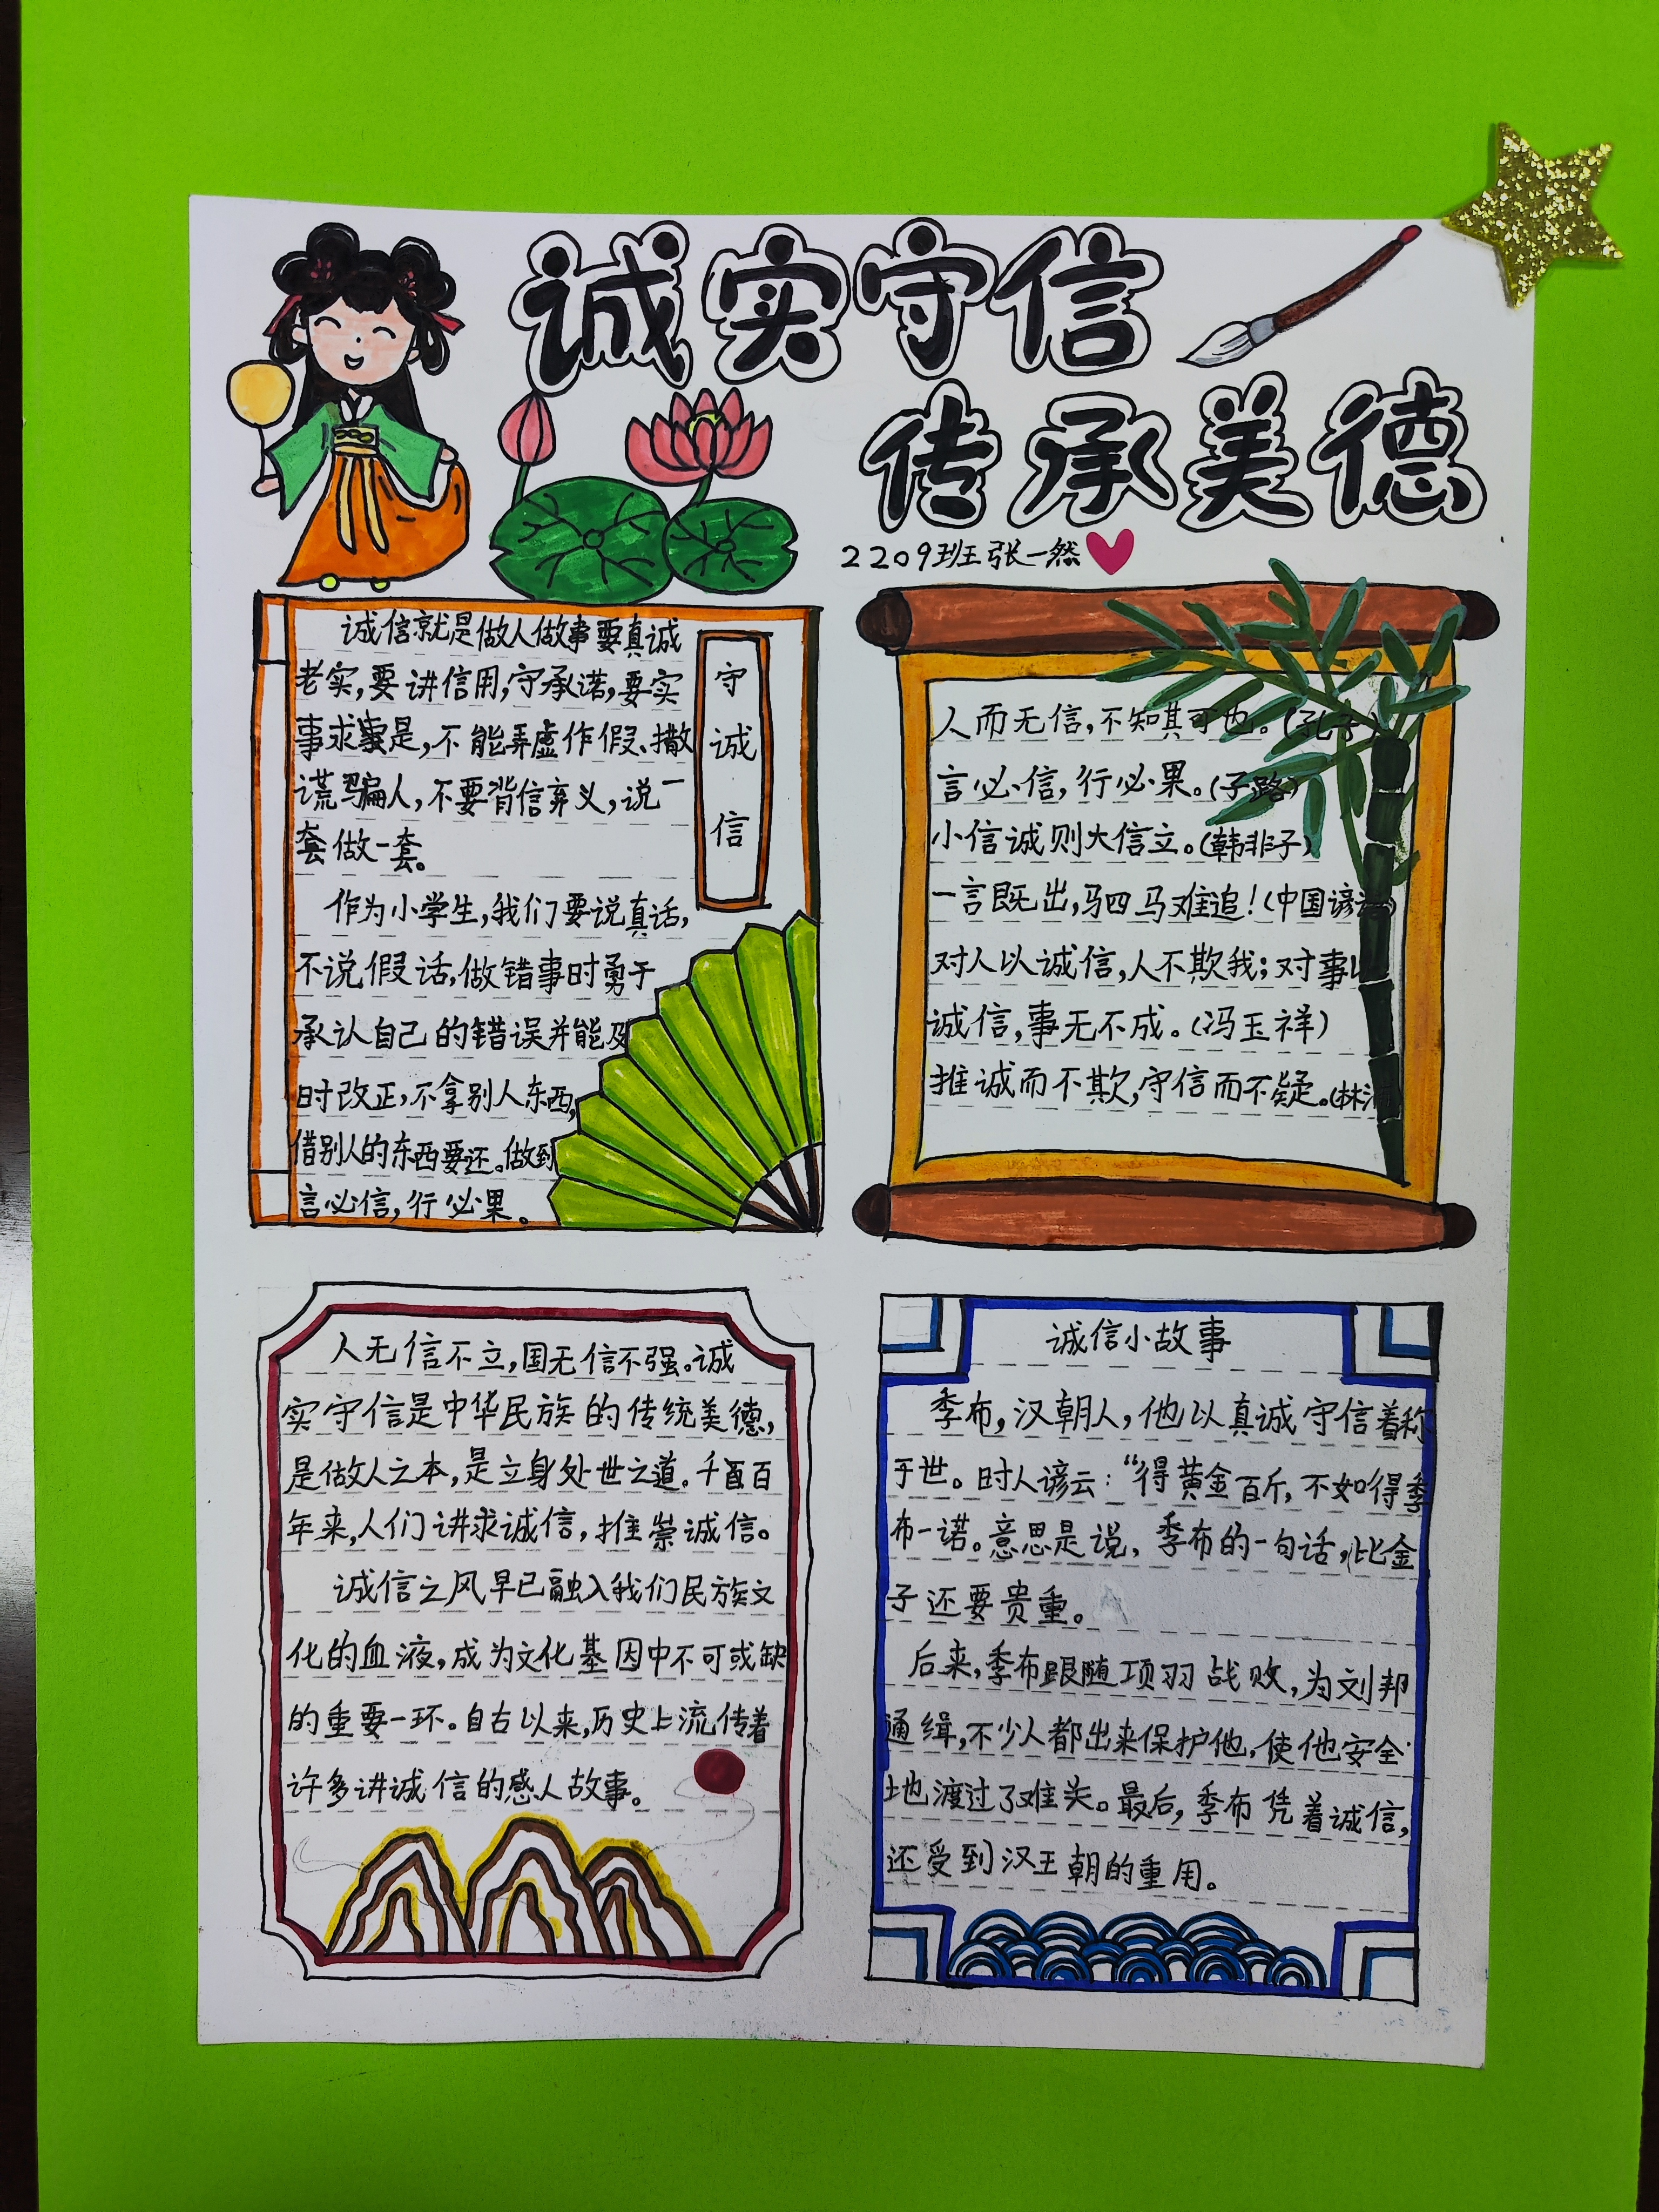 诚实守信
传承美德
2209班张一然
诚信就是做人做事要真诚
老实,要讲信用,守承诺,要实
事求是,不能弄虚作假、撒
谎骗人,不要背信弃义,说一
套做一套。
作为小学生,我们要说真话,
不说假话,做错事时勇于
承认自己的错误并能及
时改正,不拿别人东西,
借别人的东西要还。做到
言必信,行必果。
守
诚
信
人而无信,不知其可也。(孔子)
言必信,行必果。(子路)
小信诚则大信立。(韩非子)
一言既出,驷马难追!(中国谚
对人以诚信,人不欺我;对事
诚信,事无不成。(冯玉祥)
推诚而不欺,守信而不疑。(林
人无信不立,国无信不强。诚
实守信是中华民族的传统美德,
是做人之本,是立身处世之道。千百
年来,人们讲求诚信,推崇诚信。
诚信之风早已融入我们民族文
化的血液,成为文化基因中不可或缺
的重要一环。自古以来,历史上流传着
许多讲诚信的感人故事。
诚信小故事
季布,汉朝人,他以真诚守信着称
于世。时人谚云:“得黄金百斤,不如得季
布一诺。意思是说,季布的一句话,比金
子还要贵重。
后来,季布跟随项羽战败,为刘邦
通缉,不少人都出来保护他,使他安全
地渡过了难关。最后,季布凭着诚信,
还受到汉王朝的重用。